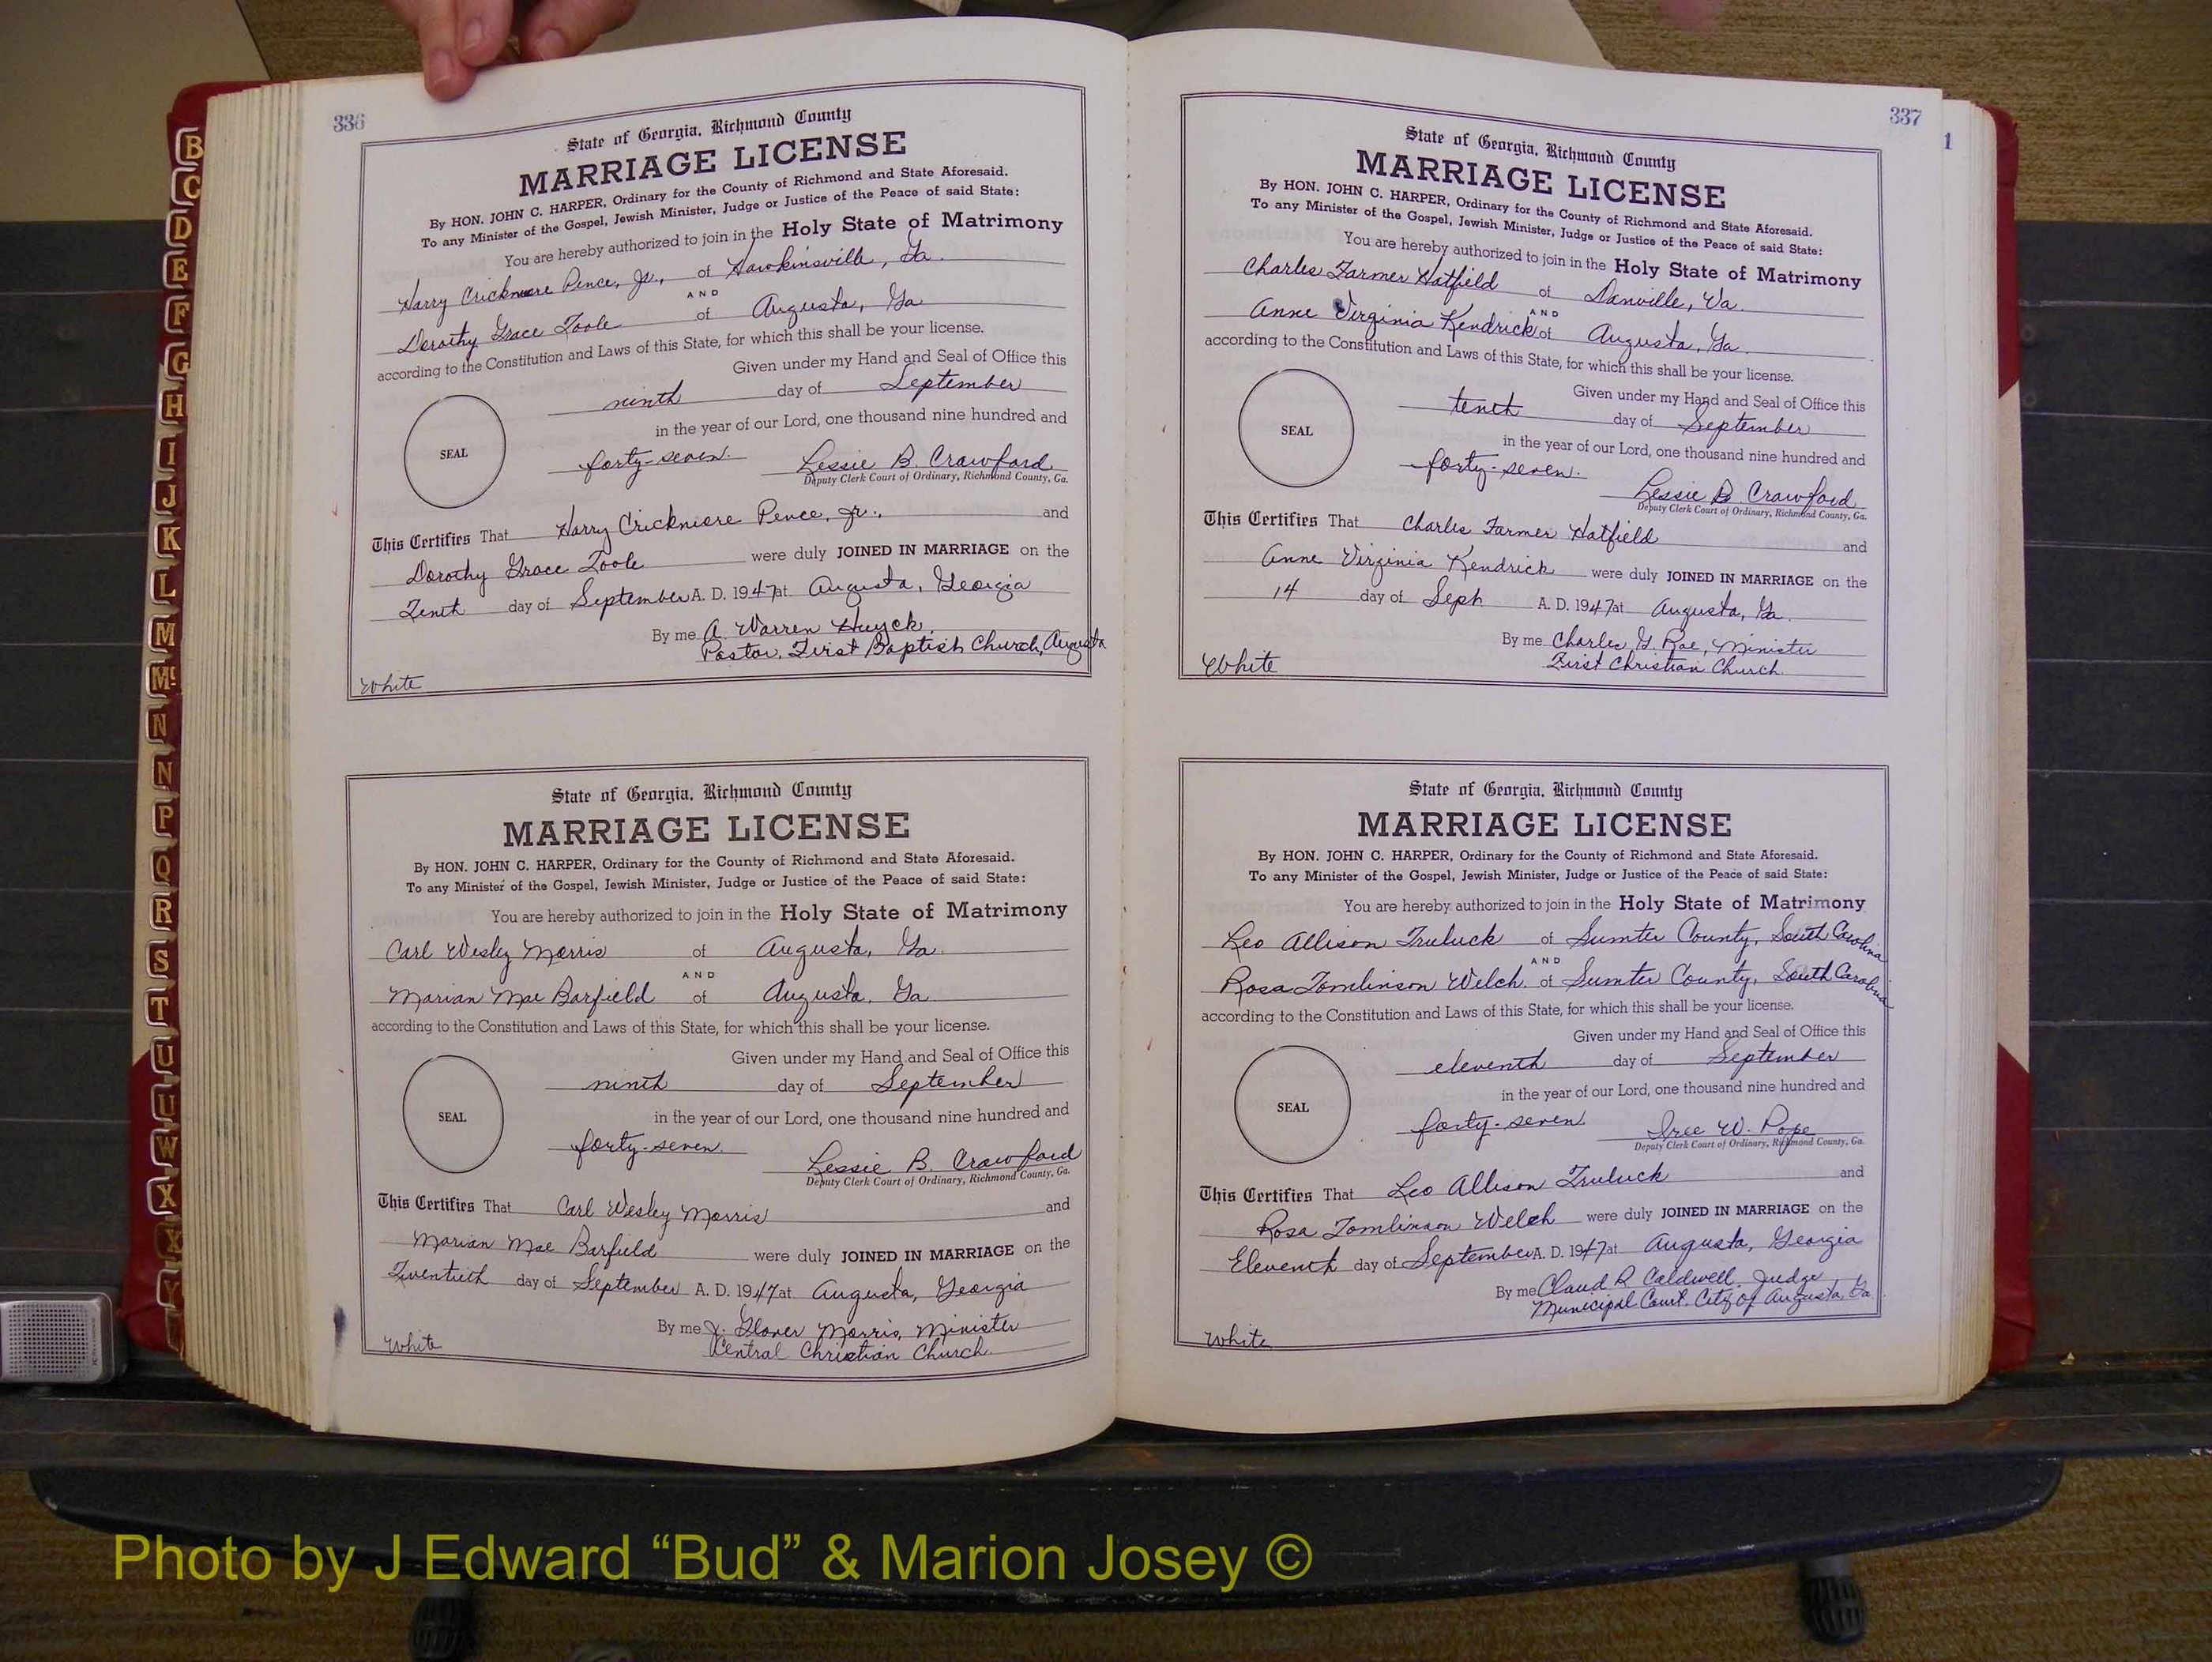 B
C
D
E
F
G
H
I
J
K
L
M
Mc
N
N
P
Q
R
S
T
U
U
W
X
X
Y
336
State of Georgia, Richmond County
MARRIAGE LICENSE
By HON. JOHN C. HARPER, Ordinary for the County of Richmond and State Aforesaid.
To any Minister of the Gospel, Jewish Minister, Judge or Justice of the Peace of said State:
You are hereby authorized to join in the Holy State of Matrimony
Harry Crickmore Pence, Jr., of Hawkinsville, Ga.
AND
Dorothy Grace Toole of Augusta, Ga
according to the Constitution and Laws of this State, for which this shall be your license.
Given under my Hand and Seal of Office this
ninth day of September
in the year of our Lord, one thousand nine hundred and
SEAL
forty-seven. Lessie B. Crawford
Deputy Clerk Court of Ordinary, Richmond County, Ga.
This Certifies That Harry Crickmore Pence, Jr., and
Dorothy Grace Toole were duly JOINED IN MARRIAGE on the
Tenth day of September A. D. 1947 at Augusta, Georgia
By me A. Warren Huyck
Pastor, First Baptist Church, Augusta
White
State of Georgia, Richmond County
MARRIAGE LICENSE
By HON. JOHN C. HARPER, Ordinary for the County of Richmond and State Aforesaid.
To any Minister of the Gospel, Jewish Minister, Judge or Justice of the Peace of said State:
You are hereby authorized to join in the Holy State of Matrimony
Carl Wesley Morris of Augusta, Ga.
AND
Marian Mae Barfield of Augusta, Ga
according to the Constitution and Laws of this State, for which this shall be your license.
Given under my Hand and Seal of Office this
ninth day of September
in the year of our Lord, one thousand nine hundred and
SEAL
forty-seven. Lessie B. Crawford
Deputy Clerk Court of Ordinary, Richmond County, Ga.
This Certifies That Carl Wesley Morris and
Marian Mae Barfield were duly JOINED IN MARRIAGE on the
Twentieth day of September A. D. 1947 at Augusta, Georgia
By me J. Glover Morris, Minister
Central Christian Church
White
337
1
State of Georgia, Richmond County
MARRIAGE LICENSE
By HON. JOHN C. HARPER, Ordinary for the County of Richmond and State Aforesaid.
To any Minister of the Gospel, Jewish Minister, Judge or Justice of the Peace of said State:
You are hereby authorized to join in the Holy State of Matrimony
Charles Farmer Hatfield of Danville, Va.
AND
Anne Virginia Kendrick of Augusta, Ga.
according to the Constitution and Laws of this State, for which this shall be your license.
Given under my Hand and Seal of Office this
tenth day of September
in the year of our Lord, one thousand nine hundred and
SEAL
forty-seven. Lessie B. Crawford
Deputy Clerk Court of Ordinary, Richmond County, Ga.
This Certifies That Charles Farmer Hatfield and
Anne Virginia Kendrick were duly JOINED IN MARRIAGE on the
14 day of Sept A. D. 1947 at Augusta, Ga.
By me Charles G. Roe, Minister
First Christian Church.
White
State of Georgia, Richmond County
MARRIAGE LICENSE
By HON. JOHN C. HARPER, Ordinary for the County of Richmond and State Aforesaid.
To any Minister of the Gospel, Jewish Minister, Judge or Justice of the Peace of said State:
You are hereby authorized to join in the Holy State of Matrimony
Leo Allison Truluck of Sumter County, South Carolina
AND
Rosa Tomlinson Welch of Sumter County, South Carolina
according to the Constitution and Laws of this State, for which this shall be your license.
Given under my Hand and Seal of Office this
eleventh day of September
in the year of our Lord, one thousand nine hundred and
SEAL
forty-seven. W. Pope
Deputy Clerk Court of Ordinary, Richmond County, Ga.
This Certifies That Leo Allison Truluck and
Rosa Tomlinson Welch were duly JOINED IN MARRIAGE on the
Eleventh day of September A. D. 1947 at Augusta, Georgia
By me Claud R Caldwell, Judge
Municipal Court, City of Augusta, Ga
White
Photo by J Edward “Bud” & Marion Josey ©